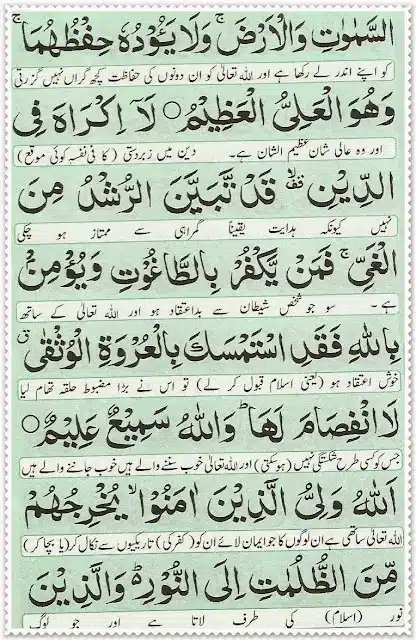 السَّمٰوٰتِ وَالْاَرْضَ ۚ وَلَا يَـُٔوْدُهٗ حِفْظُهُمَا ۚ
کو اپنے اندر لے رکھا ہے اور اللہ تعالیٰ کو ان دونوں کی حفاظت کچھ گراں نہیں گزرتی
وَهُوَ الْعَلِيُّ الْعَظِيْمُ ○ لَآ اِكْرَاهَ فِي
اور وہ عالی شان عظیم الشان ہے۔ دین میں زبردستی (کا فی نفسہٖ کوئی موقع)
الدِّيْنِ ۙ قف قَدْ تَّبَيَّنَ الرُّشْدُ مِنَ
نہیں کیونکہ ہدایت یقیناً گمراہی سے ممتاز ہو چکی
الْغَيِّ ۚ فَمَنْ يَّكْفُرْ بِالطَّاغُوْتِ وَيُؤْمِنْۢ
ہے۔ سو جو شخص شیطان سے بداعتقاد ہو اور اللہ تعالیٰ کے ساتھ
بِاللّٰهِ فَقَدِ اسْتَمْسَكَ بِالْعُرْوَةِ الْوُثْقٰى ق
خوش اعتقاد ہو (یعنی اسلام قبول کر لے) تو اس نے بڑا مضبوط حلقہ تھام لیا
لَا انْفِصَامَ لَهَا ؕ وَاللّٰهُ سَمِيْعٌ عَلِيْمٌ ○
جس کو کسی طرح شکستگی نہیں (ہوسکتی) اور اللہ تعالیٰ خوب سننے والے ہیں خوب جاننے والے ہیں
اَللّٰهُ وَلِيُّ الَّذِيْنَ اٰمَنُوْا ۙ يُخْرِجُهُمْ
اللہ تعالیٰ ساتھی ہے ان لوگوں کا جو ایمان لائے ان کو (کفر کی) تاریکیوں سے نکال کر (یا بچا کر)
مِّنَ الظُّلُمٰتِ اِلَى النُّوْرِ ؕ وَالَّذِيْنَ
نور (اسلام) کی طرف لاتا ہے اور جو لوگ